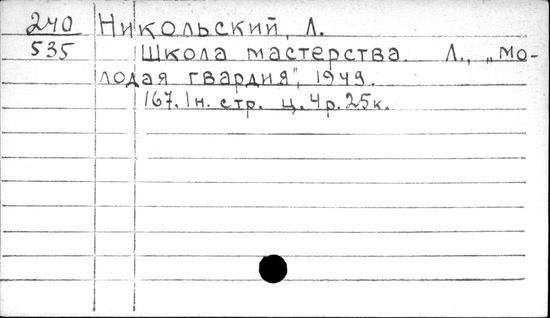 240 Никольский, Л.
535 Школа мастерства. Л., „Мо-
лодая гвардия", 1949.
167.1н. стр. ц. 4р. 25к.